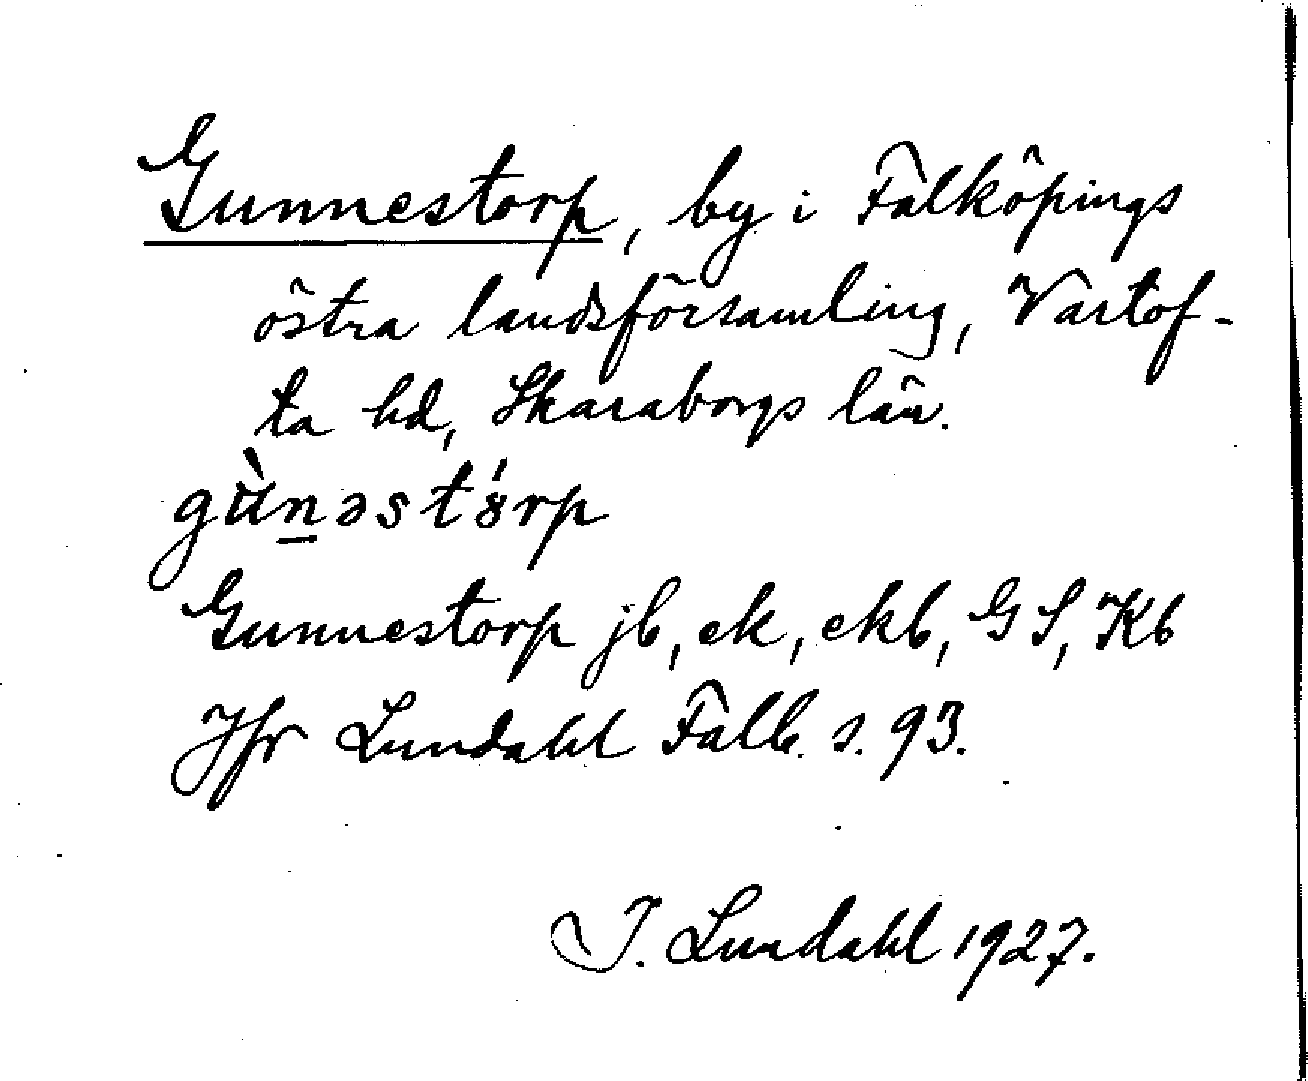 Gunnestorp, by i Falköpings
östra landsförsamling, Vartof-
ta hd, Skaraborgs län.
gùn̲əstó̤rp
Gunnestorp jb, ek, ekb, GS, Kb
Jfr Lundahl Falb. s. 93.
I. Lundahl 1927.